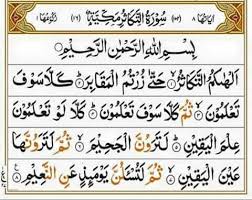 اٰیاتہا ٨ (١٠٢) سُوْرَةُ التَّكَاثُرِ مَكِّیَّةٌ (١٦) رکوعہا ١
بِسْمِ اللّٰهِ الرَّحْمٰنِ الرَّحِیْمِ
اَلْهٰىكُمُ التَّكَاثُرُ ۙ حَتّٰی زُرْتُمُ الْمَقَابِرَ ؕ كَلَّا سَوْفَ
تَعْلَمُوْنَ ۙ ثُمَّ كَلَّا سَوْفَ تَعْلَمُوْنَ ؕ كَلَّا لَوْ تَعْلَمُوْنَ
عِلْمَ الْیَقِیْنِ ؕ لَتَرَوُنَّ الْجَحِیْمَ ۙ ثُمَّ لَتَرَوُنَّهَا
عَیْنَ الْیَقِیْنِ ۙ ثُمَّ لَتُسْـَٔلُنَّ یَوْمَىِٕذٍ عَنِ النَّعِیْمِ